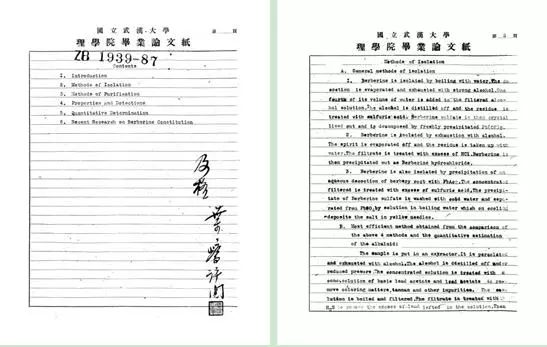 國立武漢大學
第 頁
理學院畢業論文紙
ZB 1939-87
Contents
1. Introduction
2. Methods of Isolation
3. Methods of Purification
4. Properties and Detections
5. Quantitative Determination
6. Recent Research on Berberine Constitution
及格
葉
評閱
國立武漢大學
第 頁
理學院畢業論文紙
Methods of Isolation
A. General methods of isolation
1. Berberine is isolated by boiling with water. The
is evaporated and exhausted with strong alcohol. One
fourth of its volume of water is added to the filtered alco-
hol solution. The alcohol is distilled off and the residue is
treated with sulfuric acid. Berberine sulfate is then crystal
lized out and is decomposed by freshly precipitated
2. Berberine is isolated by exhaustion with alcohol.
The spirit is evaporated off and the residue is taken up with
water. The filtrate is treated with excess of HCl. Berberine is
then precipitated out as Berberine hydrochloride.
3. Berberine is also isolated by precipitation of an
aqueous decoction of berbery root with The concentrated
filtered is treated with excess of sulfuric acid. The precipi-
tate of Berberine sulfate is washed with cold water and sepa-
rated from by solution in boiling water which on cooling
deposits the salt in yellow needles.
B. Most efficient method obtained from the comparison of
the above 4 methods and the quantitative estimation
of the alkaloid:
The sample is put in an extractor. It is percolated
and exhausted with alcohol. The alcohol is distilled off under
reduced pressure. The concentrated solution is treated with a
solution of basic lead acetate and lead acetate to re-
move coloring matters, tannan and other impurities. The
lution is boiled and filtered. The filtrate is treated with
H₂S to remove the excess of lead in the solution. Then